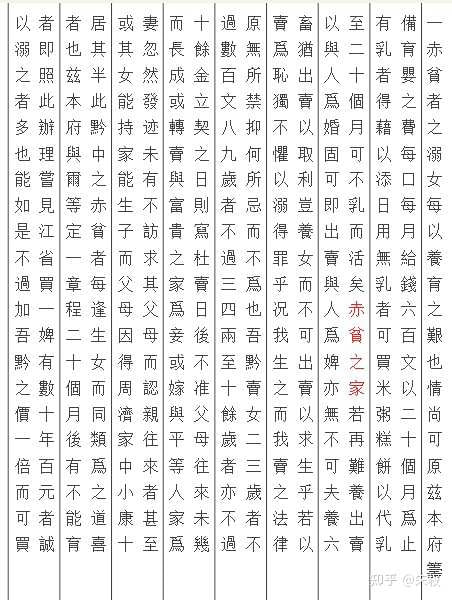 一赤貧者之溺女每以養育之艱也情尚可原茲本府籌
備育嬰之費每口每月給錢六百文以二十個月爲止
有乳者得藉以添日用無乳者可買米粥糕餅以代乳
至二十個月可不乳而活矣赤貧之家若再難養出賣
以與人爲婚固可即出賣與人爲婢亦無不可夫養六
畜猶出賣以取利豈養女而不可出賣以求生乎若以
賣爲恥獨不懼以溺得罪乎況我生之而我賣之法律
原無所禁抑何所忌而不爲也吾黔賣女二三歲者不
過數百文八九歲者不過三四兩至十餘歲者亦不過
十餘金立契之日則寫杜賣日後不准父母往來未幾
而長成或轉賣與富貴之家爲妾或嫁與平等人家爲
妻忽然發迹未有不訪求其父母而認親往來者甚至
或其女能持家能生子而父母因得而周濟家中小康十
居其半此黔中之赤貧者每逢生女而同類爲之道喜
者也茲本府與爾等定一章程二十個月後有不能育
者即照此辦理嘗見江省買一婢有數十年百元者誠
以溺之者多也能如是不過加吾黔之價一倍而可買